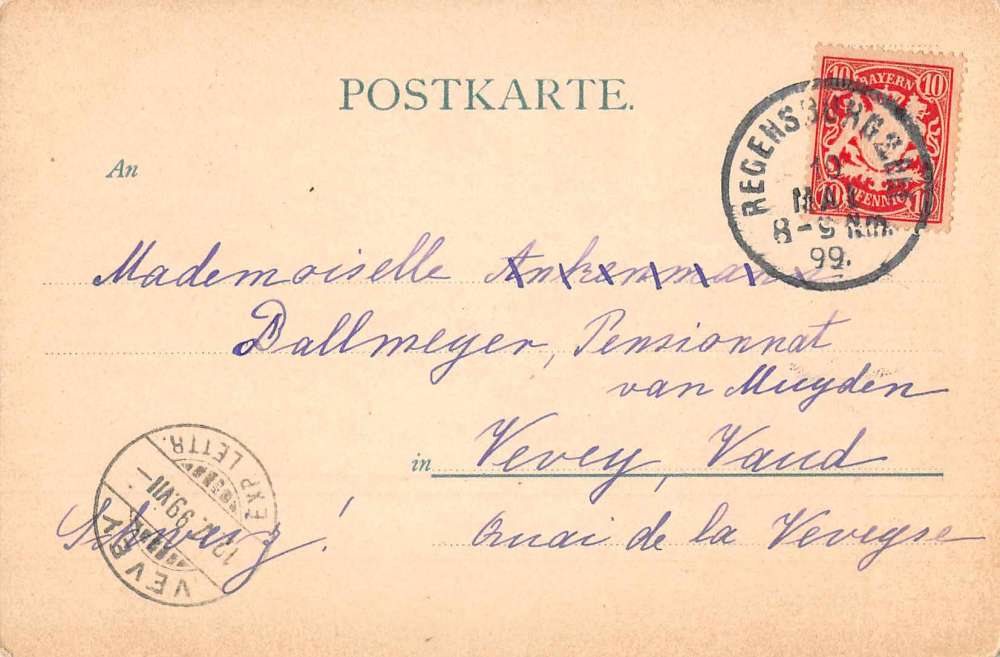 POSTKARTE.
10 BAYERN 10
REGENSBURG 2
10
MAI
8-9 Nm.
99.
10 PFENNIG
An
Mademoiselle Ankenmann
Dallmeyer, Pensionnat
van Muyden
in Vevey, Vaud
Schweiz!
Quai de la Veveyse
EXP. LETTR.
99.VII
VEVEY